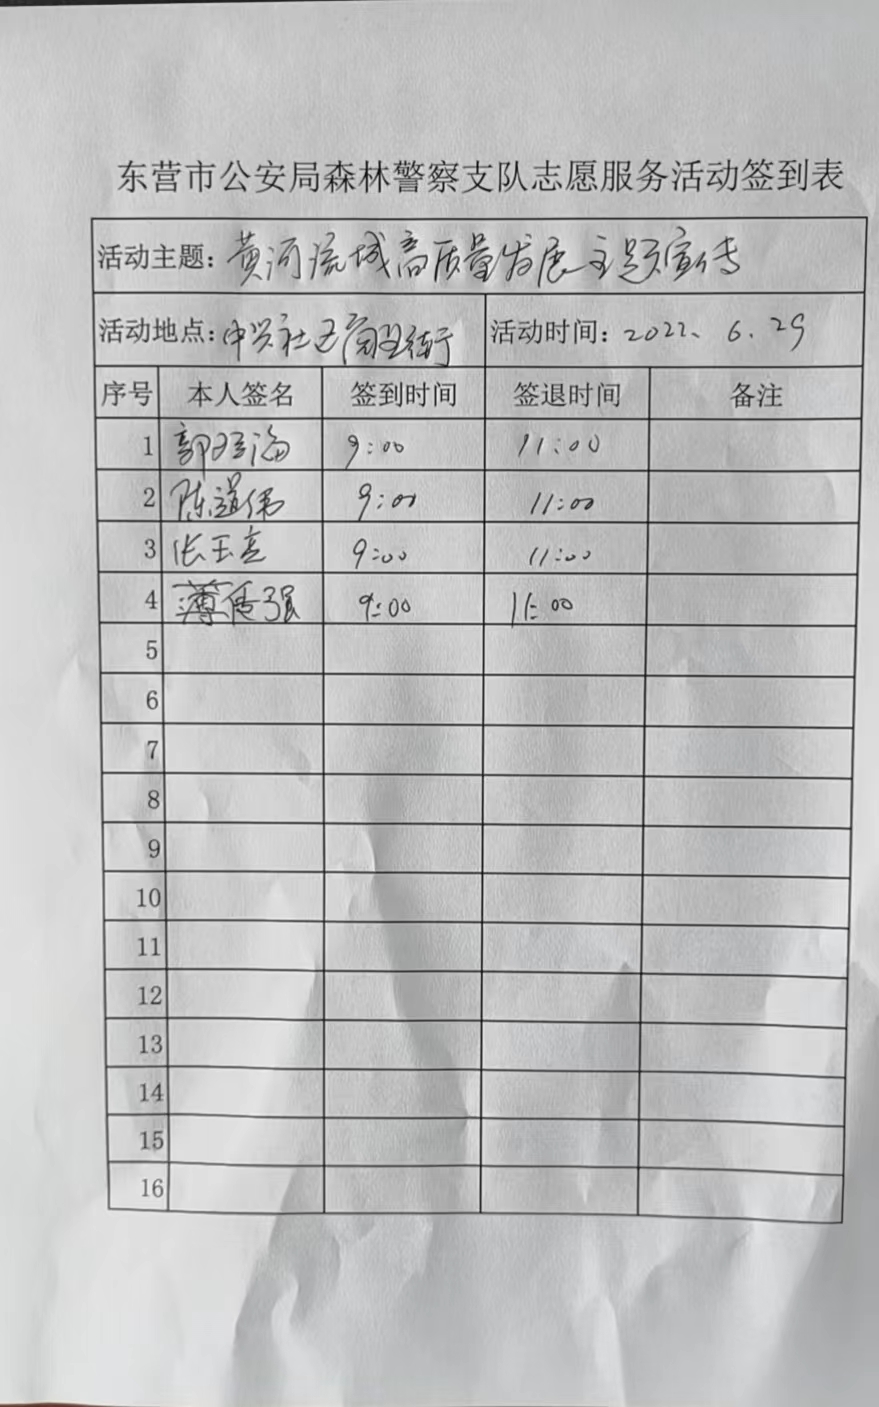 东营市公安局森林警察支队志愿服务活动签到表
活动主题：黄河流域高质量发展主题宣传
活动地点：中兴社区商业街 活动时间：2022、6.29
序号 本人签名 签到时间 签退时间 备注
1 郭 海 9:00 11:00
2 陈道伟 9:00 11:00
3 张玉亮 9:00 11:00
4 薄 强 9:00 11:00
5
6
7
8
9
10
11
12
13
14
15
16